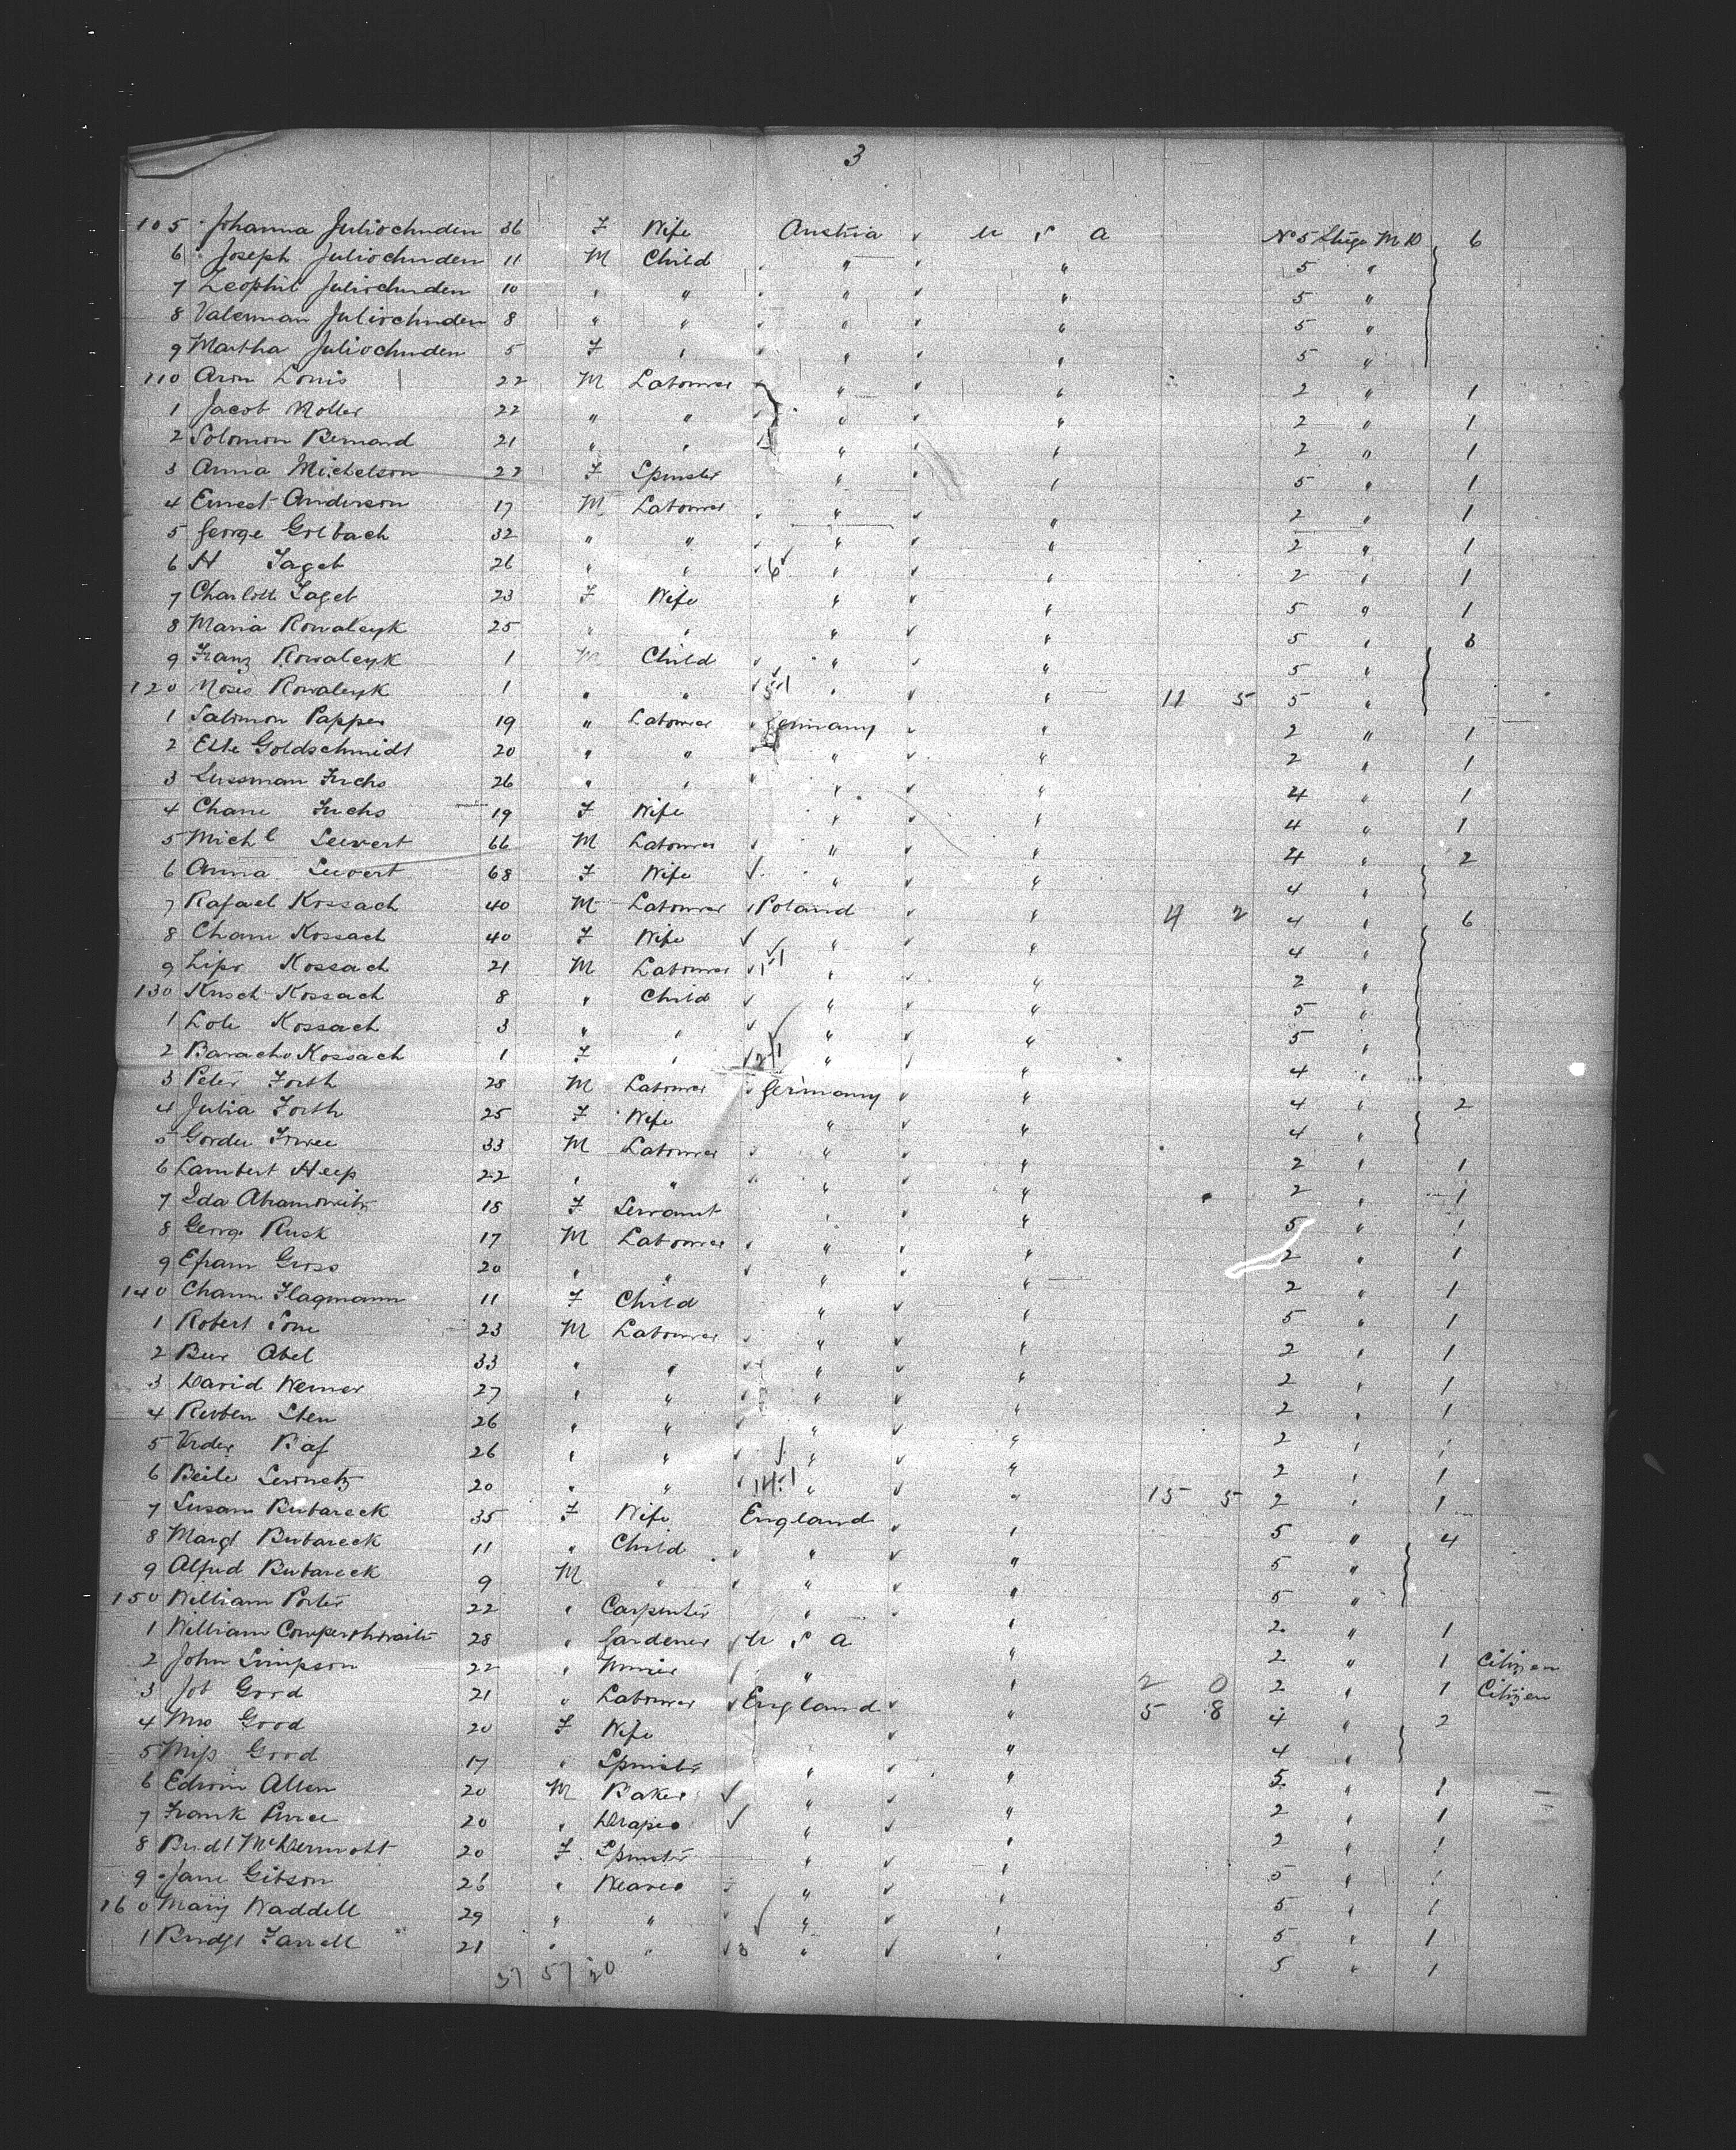 3
105 Johanna Juliochnden 36 F Wife Austria U S A No 5 Stige M 10 6
6 Joseph Juliochnden 11 M Child " " 5 "
7 Leophil Juliochnden 10 " " " " 5 "
8 Valerman Juliochnden 8 " " " " 5 "
9 Martha Juliochnden 5 F " " " 5 "
110 Aron Louis 22 M Labourer " " 2 " 1
1 Jacob Moller 22 " " " " 2 " 1
2 Solomon Bernard 21 " " " " 2 " 1
3 Anna Michelson 22 F Spinster " " 5 " 1
4 Ernest Anderson 17 M Labourer " " 2 " 1
5 George Golbach 32 " " " " 2 " 1
6 H Taget 26 " " 6 " " 2 " 1
7 Charlotte Taget 23 F Wife " " 5 " 1
8 Maria Kowalcyk 25 " " " " 5 " 3
9 Franz Kowalcyk 1 M Child " " 5 "
120 Moses Kowalcyk 1 " " " " 11 5 5 "
1 Salomon Papper 19 " Labourer Germany " 2 " 1
2 Este Goldschmidt 20 " " " " 2 " 1
3 Sussman Fuchs 26 " " " " 4 " 1
4 Chane Fuchs 19 F Wife " " 4 " 1
5 Michl Seewert 66 M Labourer " " 4 " 2
6 Anna Seewert 68 F Wife " " 4 "
7 Rafael Kossach 40 M Labourer Poland " 4 2 4 " 6
8 Chane Kossach 40 F Wife " " 4 "
9 Lipo Kossach 21 M Labourer " " 2 "
130 Kusch Kossach 8 " Child " " 5 "
1 Lole Kossach 3 " " " " 5 "
2 Baracho Kossach 1 F " " " 4 "
3 Peter Forth 28 M Labourer Germany " 4 " 2
4 Julia Forth 25 F Wife " " 4 "
5 Gorden 33 M Labourer " " 2 " 1
6 Lambert Heep 22 " " " " 2 " 1
7 Ida Abramowitz 18 F Servant " " 5 " 1
8 George Rusk 17 M Labourer " " 2 " 1
9 Efram Gross 20 " " " " 2 " 1
140 Channe Flagmann 11 F Child " " 5 " 1
1 Robert Sone 23 M Labourer " " 2 " 1
2 Beer Abel 33 " " " " 2 " 1
3 David Werner 27 " " " " 2 " 1
4 Reuben Sten 26 " " " " 2 " 1
5 Baf 26 " " " " 2 " 1
6 Beile Lewnetz 20 " " " " 15 5 2 " 1
7 Susan Bubareck 35 F Wife England " 5 " 4
8 Margt Bubareck 11 " Child " " 5 "
9 Alfred Bubareck 9 M " " " 5 "
150 William Porter 22 " Carpenter " " 2 " 1
1 William Cowperthwaite 28 " Gardener U S A " 2 " 1 Citizen
2 John Simpson 22 " Miner " " 2 0 2 " 1 Citizen
3 Job Good 21 " Labourer England " 5 8 4 " 2
4 Mrs Good 20 F Wife " 4 "
5 Miss Good 17 " Spinster " " 5 " 1
6 Edwin Allen 20 M Baker " " 2 " 1
7 Frank Price 20 " Draper " " 2 " 1
8 Bridt McDermott 20 F Spinster " " 5 " 1
9 Jane Gibson 26 " Weaver " " 5 " 1
160 Mary Waddell 29 " " " " 5 " 1
1 Bridgt Farrell 21 " " " " 5 " 1
37 57 20